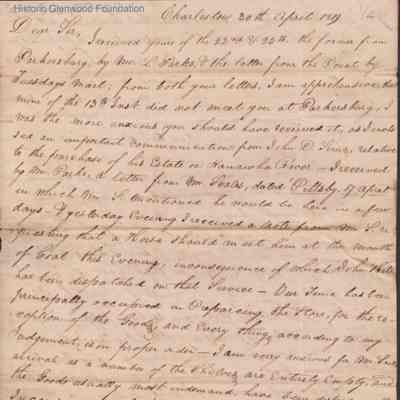 Historic Glenwood Foundation
Charleston 30th April 1819
Dear Sir,
I received yours of the 22nd & 25th the former from
Parkersburg, by Mr. L. Parks, & the letter from the Boat by
Tuesdays Mail; from both your letters, I am apprehensive that
mine of the 13th Inst did not meet you at Parkersburg, I
was the more anxious you should have received it, as I
an important communication from John D. relative
to the purchase of his Estate on Kanawha River — I received
by Mr. Parks a letter from Mr. dated Pittsbg 17 april
in which Mr. S. mentioned he would be here in a few
days — & yesterday Evening I received a note from Mr.
questing that a Horse should meet him at the mouth
of Coal this Evening, inconsequence of which John
has been dispatched on that Service — Our time has been
principally occupied in Prepareing the Store, for the re-
ception of the Goods, and Every thing according to my
Judgement, is in proper order — I am very anxious for
arrival as a number of the Shelves are Entirely Empty, and
the Goods usually most in demand, have been